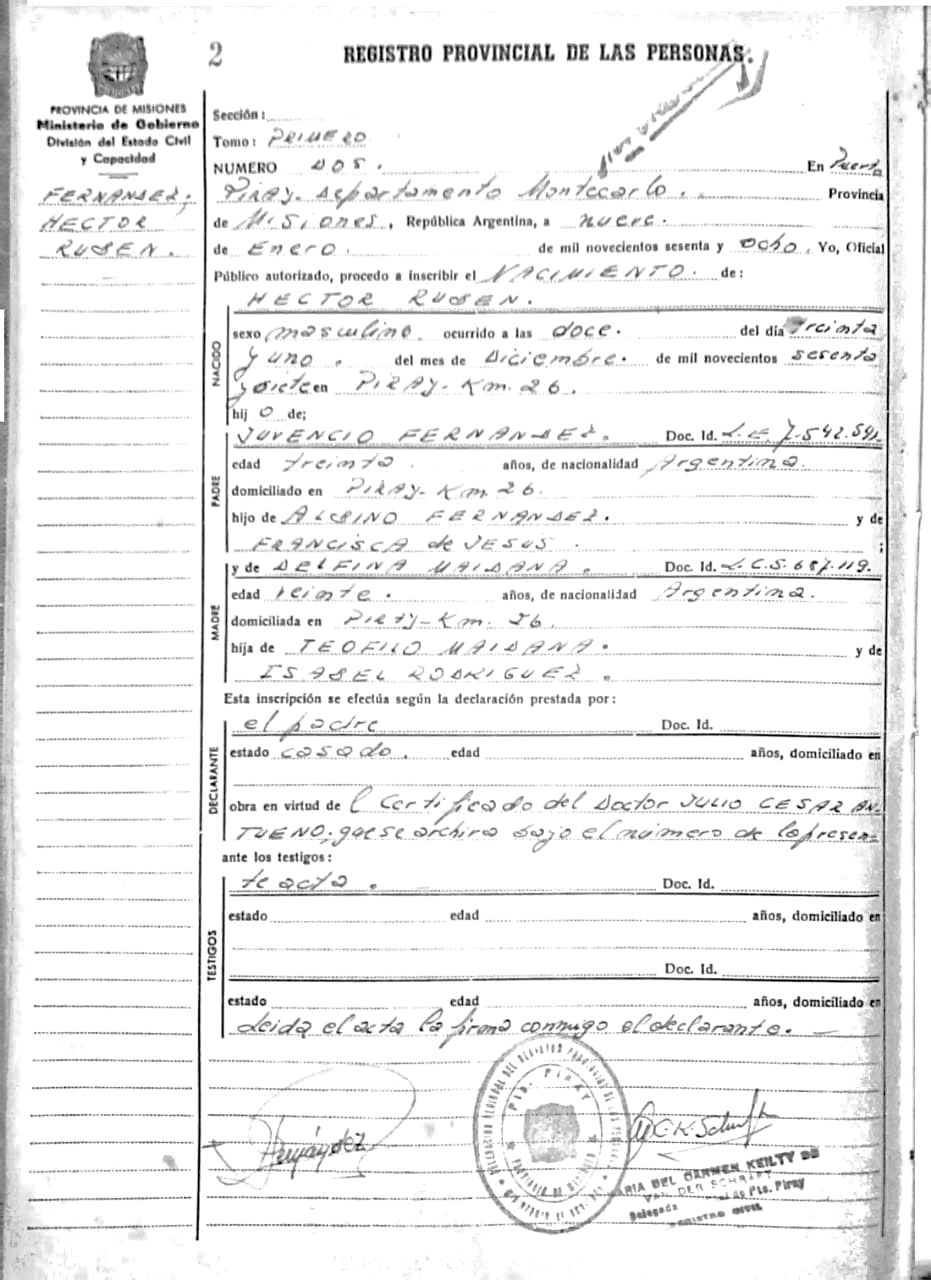 2
REGISTRO PROVINCIAL DE LAS PERSONAS.
PROVINCIA DE MISIONES
Ministerio de Gobierno
División del Estado Civil
y Capacidad
FERNANDEZ,
HECTOR
RUBEN.
Sección:
Tomo: PRIMERO
NUMERO DOS. En Puerto
PIRAY. Departamento Montecarlo. Provincia
de Misiones, República Argentina, a nueve.
de Enero. de mil novecientos sesenta y ocho, Yo, Oficial
Público autorizado, procedo a inscribir el NACIMIENTO. de:
HECTOR RUBEN.
NACIDO
sexo masculino. ocurrido a las doce. del día treinta
y uno. del mes de Diciembre. de mil novecientos sesenta
y siete en PIRAY-Km. 26.
hijo de;
PADRE
JUVENCIO FERNANDEZ. Doc. Id. L.E. 7.542.541.
edad treinta. años, de nacionalidad Argentina.
domiciliado en PIRAY-Km. 26.
hijo de ALBINO FERNANDEZ. y de
FRANCISCA de JESUS. ;
MADRE
y de DELFINA MAIDANA. Doc. Id. L.C. 5.687.119.
edad veinte. años, de nacionalidad Argentina.
domiciliada en PIRAY-Km. 26.
hija de TEOFILO MAIDANA. y de
ISABEL RODRIGUEZ.
Esta inscripción se efectúa según la declaración prestada por:
DECLARANTE
el padre Doc. Id.
estado casado. edad años, domiciliado en
obra en virtud del Certificado del Doctor JULIO CESAR AN-
TUENO; que se archiva bajo el número de la presen-
ante los testigos:
TESTIGOS
te acta. Doc. Id.
estado edad años, domiciliado en
Doc. Id.
estado edad años, domiciliado en
Leida el acta la firma conmigo el declarante.
Pto. PIRAY
MARIA DEL CARMEN KEILTY DE
VAN DER SCHRAFT
Delegada de Pto. Piray
REGISTRO CIVIL